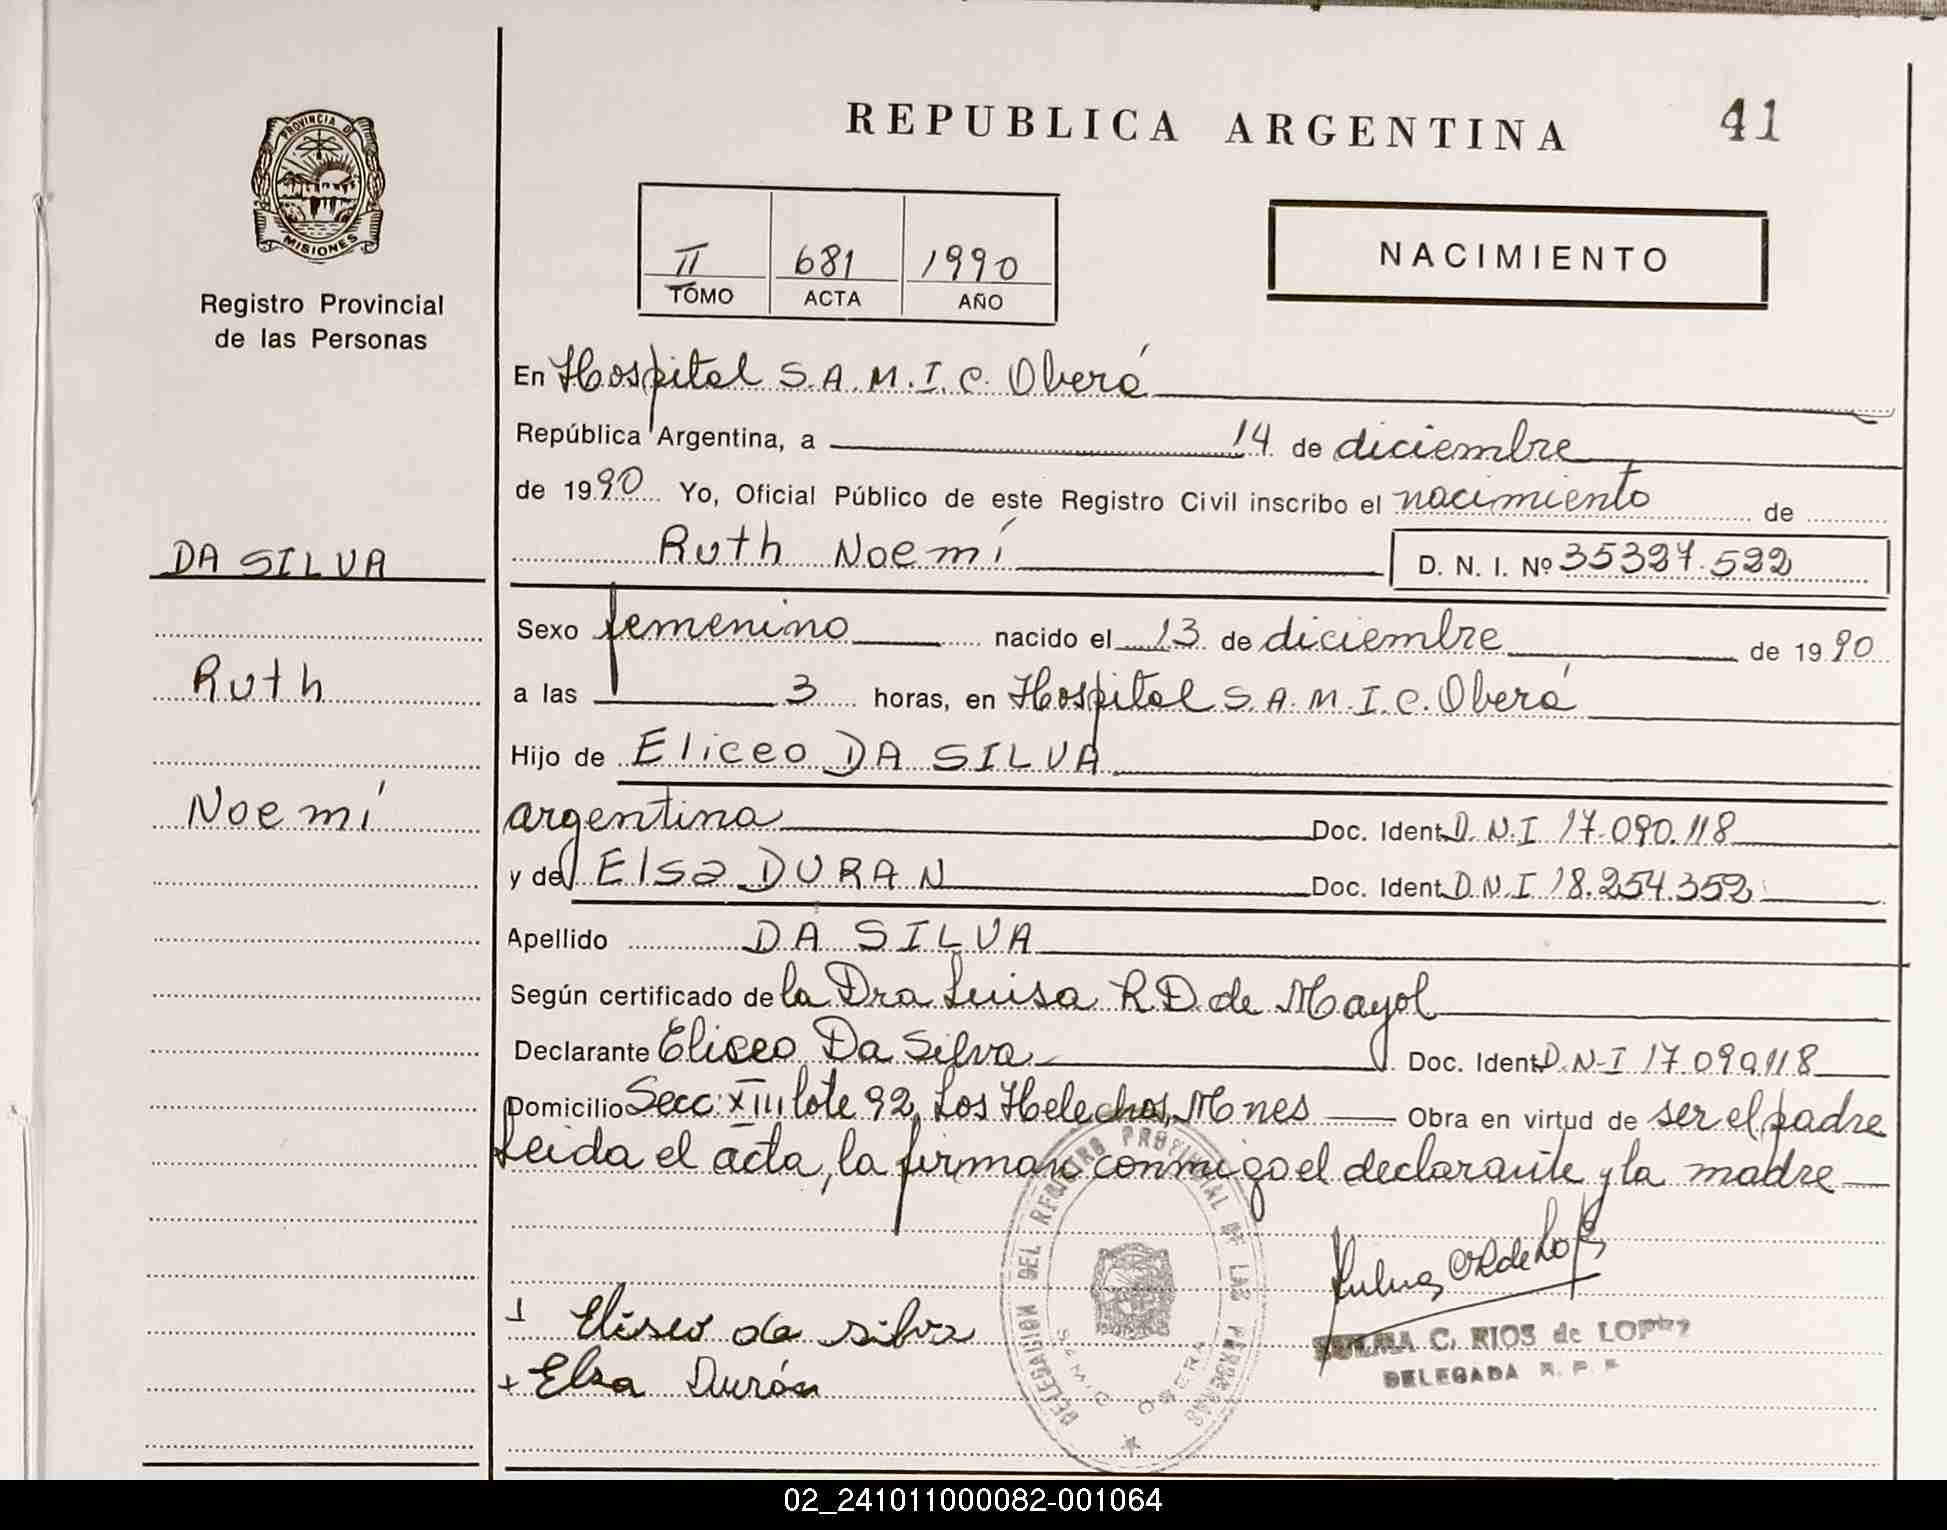 REPUBLICA ARGENTINA
41
PROVINCIA DE
MISIONES
Registro Provincial
de las Personas
II 681 1990
TOMO ACTA AÑO
NACIMIENTO
En Hospital S.A.M.I.C. Oberá
República Argentina, a 14 de diciembre
de 1990 Yo, Oficial Público de este Registro Civil inscribo el nacimiento de
DA SILVA
Ruth Noemí
D. N. I. Nº 35327.522
Sexo femenino nacido el 13 de diciembre de 1990
Ruth
a las 3 horas, en Hospital S.A.M.I.C. Oberá
Hijo de Eliceo DA SILVA
Noemí
argentina Doc. Ident. D.N.I 17.090.118
y de Elsa DURAN Doc. Ident. D.N.I 18.254.352
Apellido DA SILVA
Según certificado de la Dra Luisa R.D. de Mayol
Declarante Eliseo Da Silva Doc. Ident. D.N.I 17.090.118
Domicilio Secc: XIII lote 92, Los Helechos, Mnes Obra en virtud de ser el padre
Leida el acta, la firman conmigo el declarante y la madre
DELEGACION DEL REGISTRO PROVINCIAL DE LAS PERSONAS
SAMIC OBERA
Eliseo da silva
Elsa Durán
ZULMA C. RIOS de LOPEZ
DELEGADA R. P. P
02_241011000082-001064